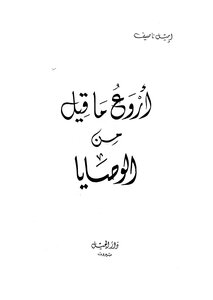 إميل ناصيف
أروع ما قيل
من
الوصايا
دار الجيل
بيروت